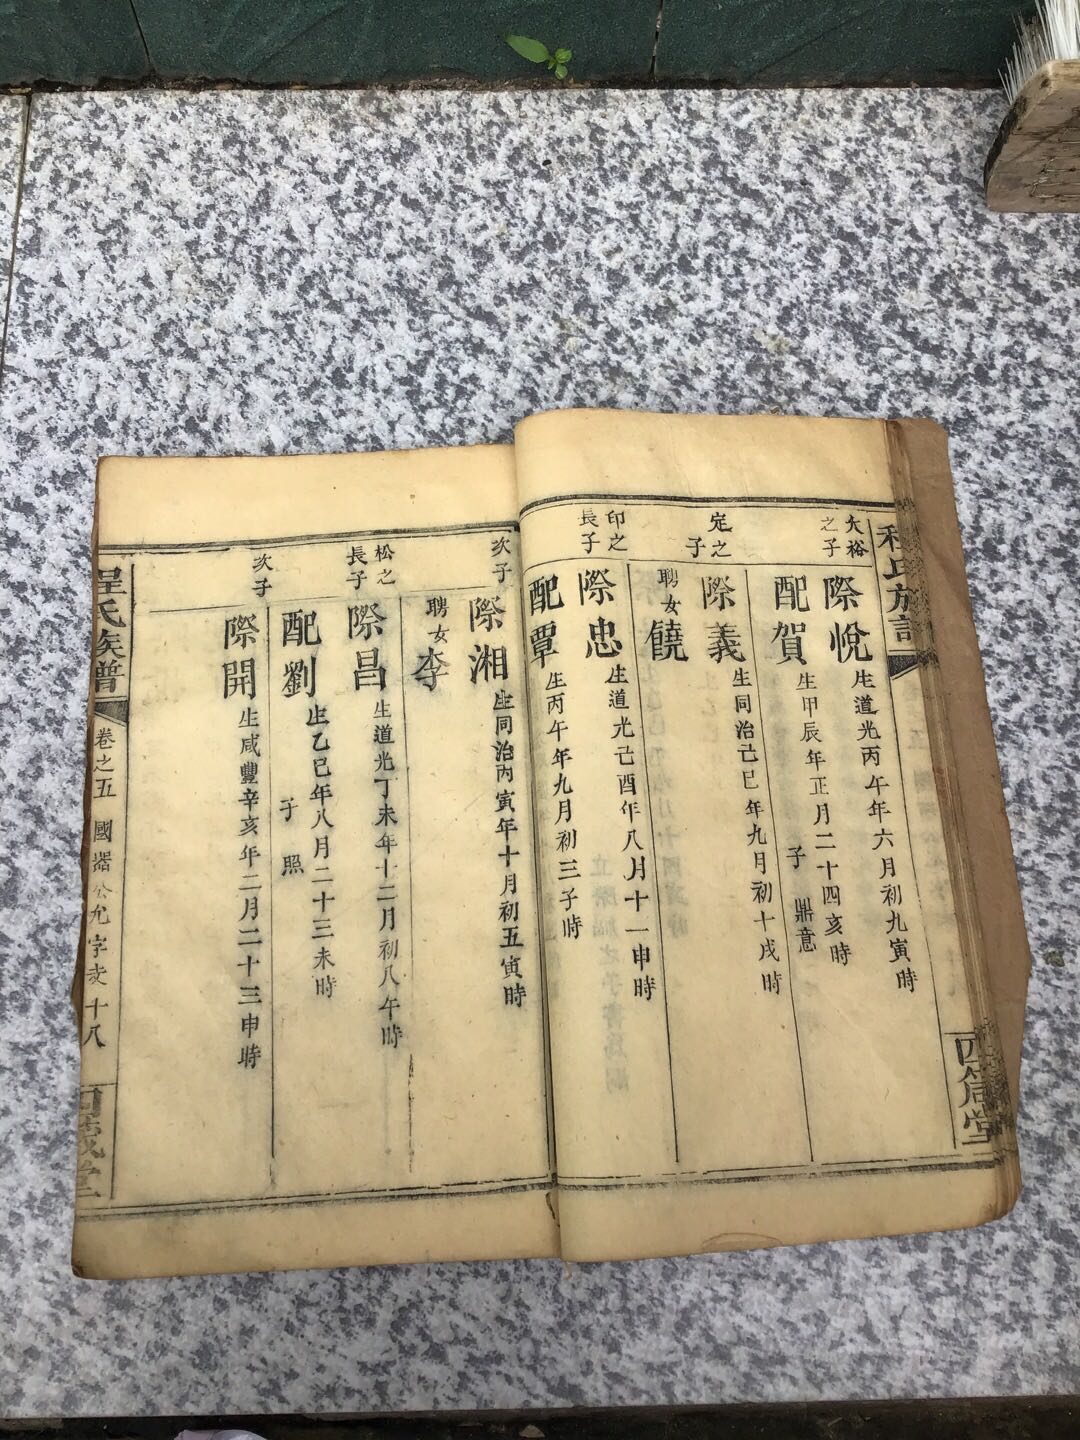 程氏族譜
四箴堂
大裕
之子
際悅
生道光丙午年六月初九寅時
配賀
生甲辰年正月二十四亥時
子 鼎意
定之
子
際義
生同治己巳年九月初十戌時
聘女饒
印之
長子
際忠
生道光己酉年八月十一申時
配覃
生丙午年九月初三子時
次子
際湘
生同治丙寅年十月初五寅時
聘女李
松之
長子
際昌
生道光丁未年十二月初八午時
配劉
生乙巳年八月二十三未時
子 照
次子
際開
生咸豐辛亥年二月二十三申時
程氏族譜
卷之五
國器公允字支十八
四箴堂